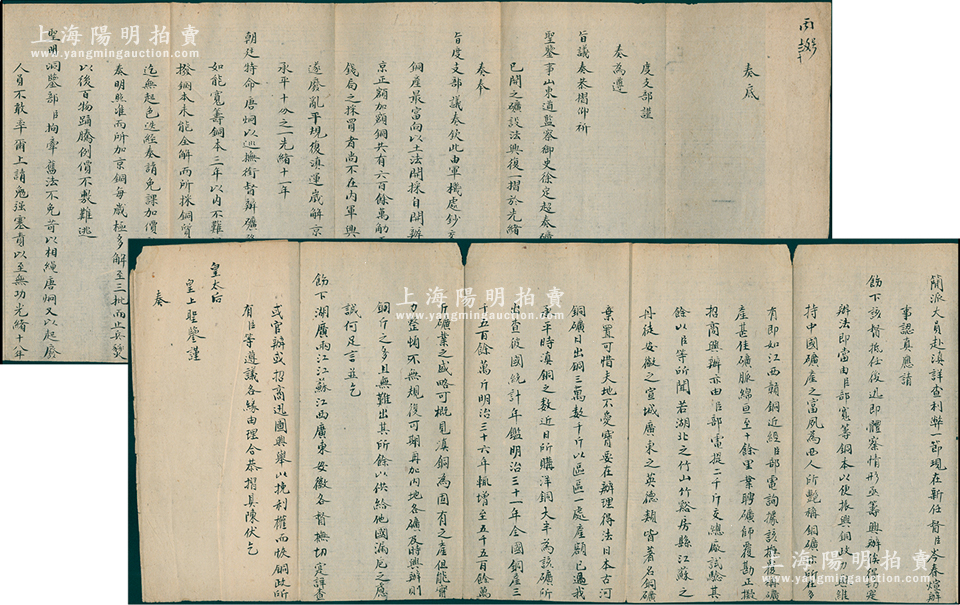 上海陽明拍賣
www.yangmingauction.com
奏底
度支部謹
奏為遵
旨議奏恭摺仰祈
聖鑒事山東道監察御史徐定超奏礦
已開之礦設法興復一摺於光緒
奏奉
旨度支部議奏欽此由軍機處鈔交
銅產最富向以土法開採自開辦
京正額加額銅共有六百餘萬觔
錢局之採買者尚不在內軍興
遂廢亂平規復滇運歲解京
承平十分之一光緒十一年
朝廷特命唐炯以巡撫銜督辦礦務
如能寬籌銅本三年以內不難
撥銅本未能全解而所採銅質
迄無起色迭經奏請免課加價
奏明照准而所加京銅每歲極多解至三批而止兵燹
以後百物踴騰例價不敷難逃
聖明洞鑒部目拘牽舊法不免苛以相繩唐炯又以起廢
人員不敢率爾上請勉強塞責以至無功光緒十八年
簡派大員赴滇詳查利弊一節現在新任督臣岑春煊解
事認真應請
飭下該督抵任後迅即體察情形妥籌興辦俟
辦法即當由臣部寬籌銅本以便振興銅政切實維
持中國礦產之富夙為西人所艷稱銅礦
有即如江西贛銅近經臣部電詢據該撫復稱礦
產甚佳礦脈綿亘至十餘里業聘礦師覆勘正擬
招商興辦亦由臣部電提二千斤交總廠試驗其
餘以臣等所聞若湖北之竹山竹谿房縣江蘇之
丹徒安徽之宣城廣東之英德類皆著名銅礦
棄置可惜夫地不愛寶要在辦理得法日本古河
銅礦日出銅三萬數千斤以區區一處產額已過我
承平時滇銅之數近日所購洋銅大半為該礦所
出查彼國統計年鑑明治三十一年全國銅產三
千五百餘萬斤明治三十六年報增至五千五百餘萬
斤礦業之盛略可概見滇銅為固有之產但能實
力整頓不無規復可期再加內地各礦及時興辦則
銅斤之多且無難出其所餘以供給他國漏卮之慮
誠何足言並乞
飭下湖廣兩江江蘇江西廣東安徽各督撫切實詳查
或官辦或招商迅圖興舉以挽利權而恢銅政所
有臣等遵議各緣由理合恭摺具陳伏乞
皇太后
皇上聖鑒謹
奏